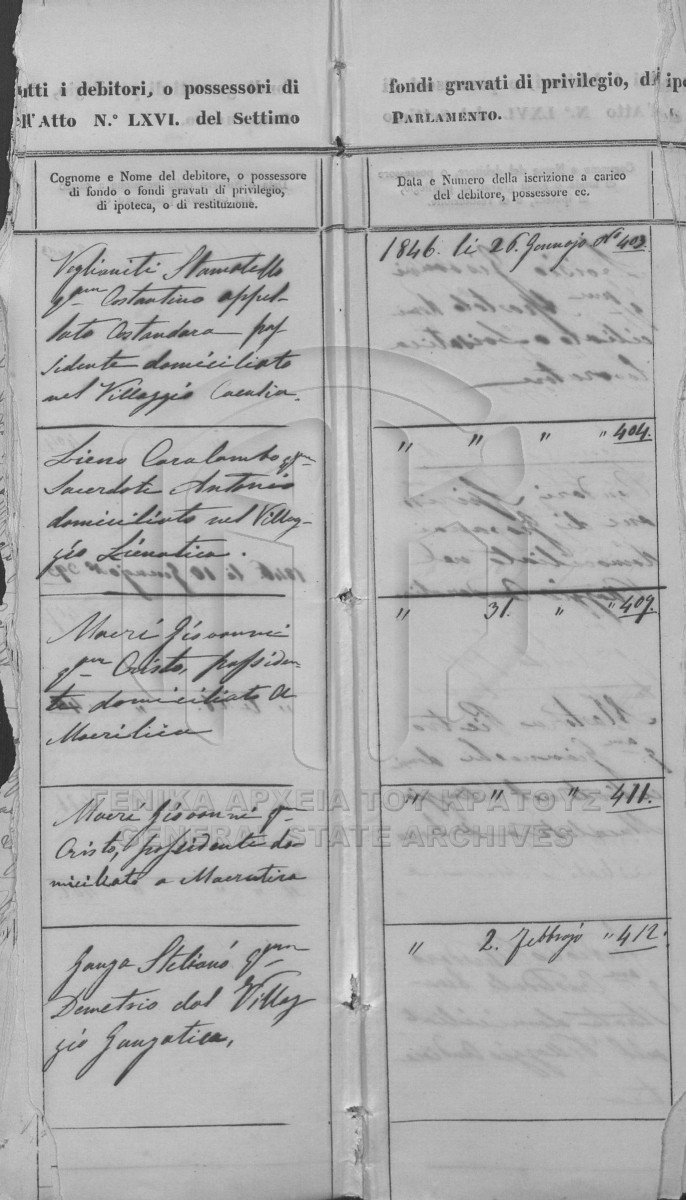 utti i debitori, o possessori di
ell'Atto N.º LXVI. del Settimo
fondi gravati di privilegio, d' ipo
PARLAMENTO.
Cognome e Nome del debitore, o possessore
di fondo o fondi gravati di privilegio,
di ipoteca, o di restituzione.
Data e Numero della iscrizione a carico
del debitore, possessore ec.
Stamatello
qm Costantino appel-
lato Costandara pos
sidente domiciliato
nel Villaggio
1846. li 26. Gennajo No 403.
Caralambo qm
Sacerdote Antonio
domiciliato nel Villag-
gio
" " " " 404.
Macrì Giovanni
qm Cristo, possiden-
te domiciliato a
" 31. " " 409.
Macrì Giovanni qm
Cristo, possidente do
miciliato a
" " " 411.
Ganza Stelianó qm
Demetrio dal Villag
gio Ganzatica,
" 2. Febbrajo " 412.
ΓΕΝΙΚΑ ΑΡΧΕΙΑ ΤΟΥ ΚΡΑΤΟΥΣ
GENERAL STATE ARCHIVES